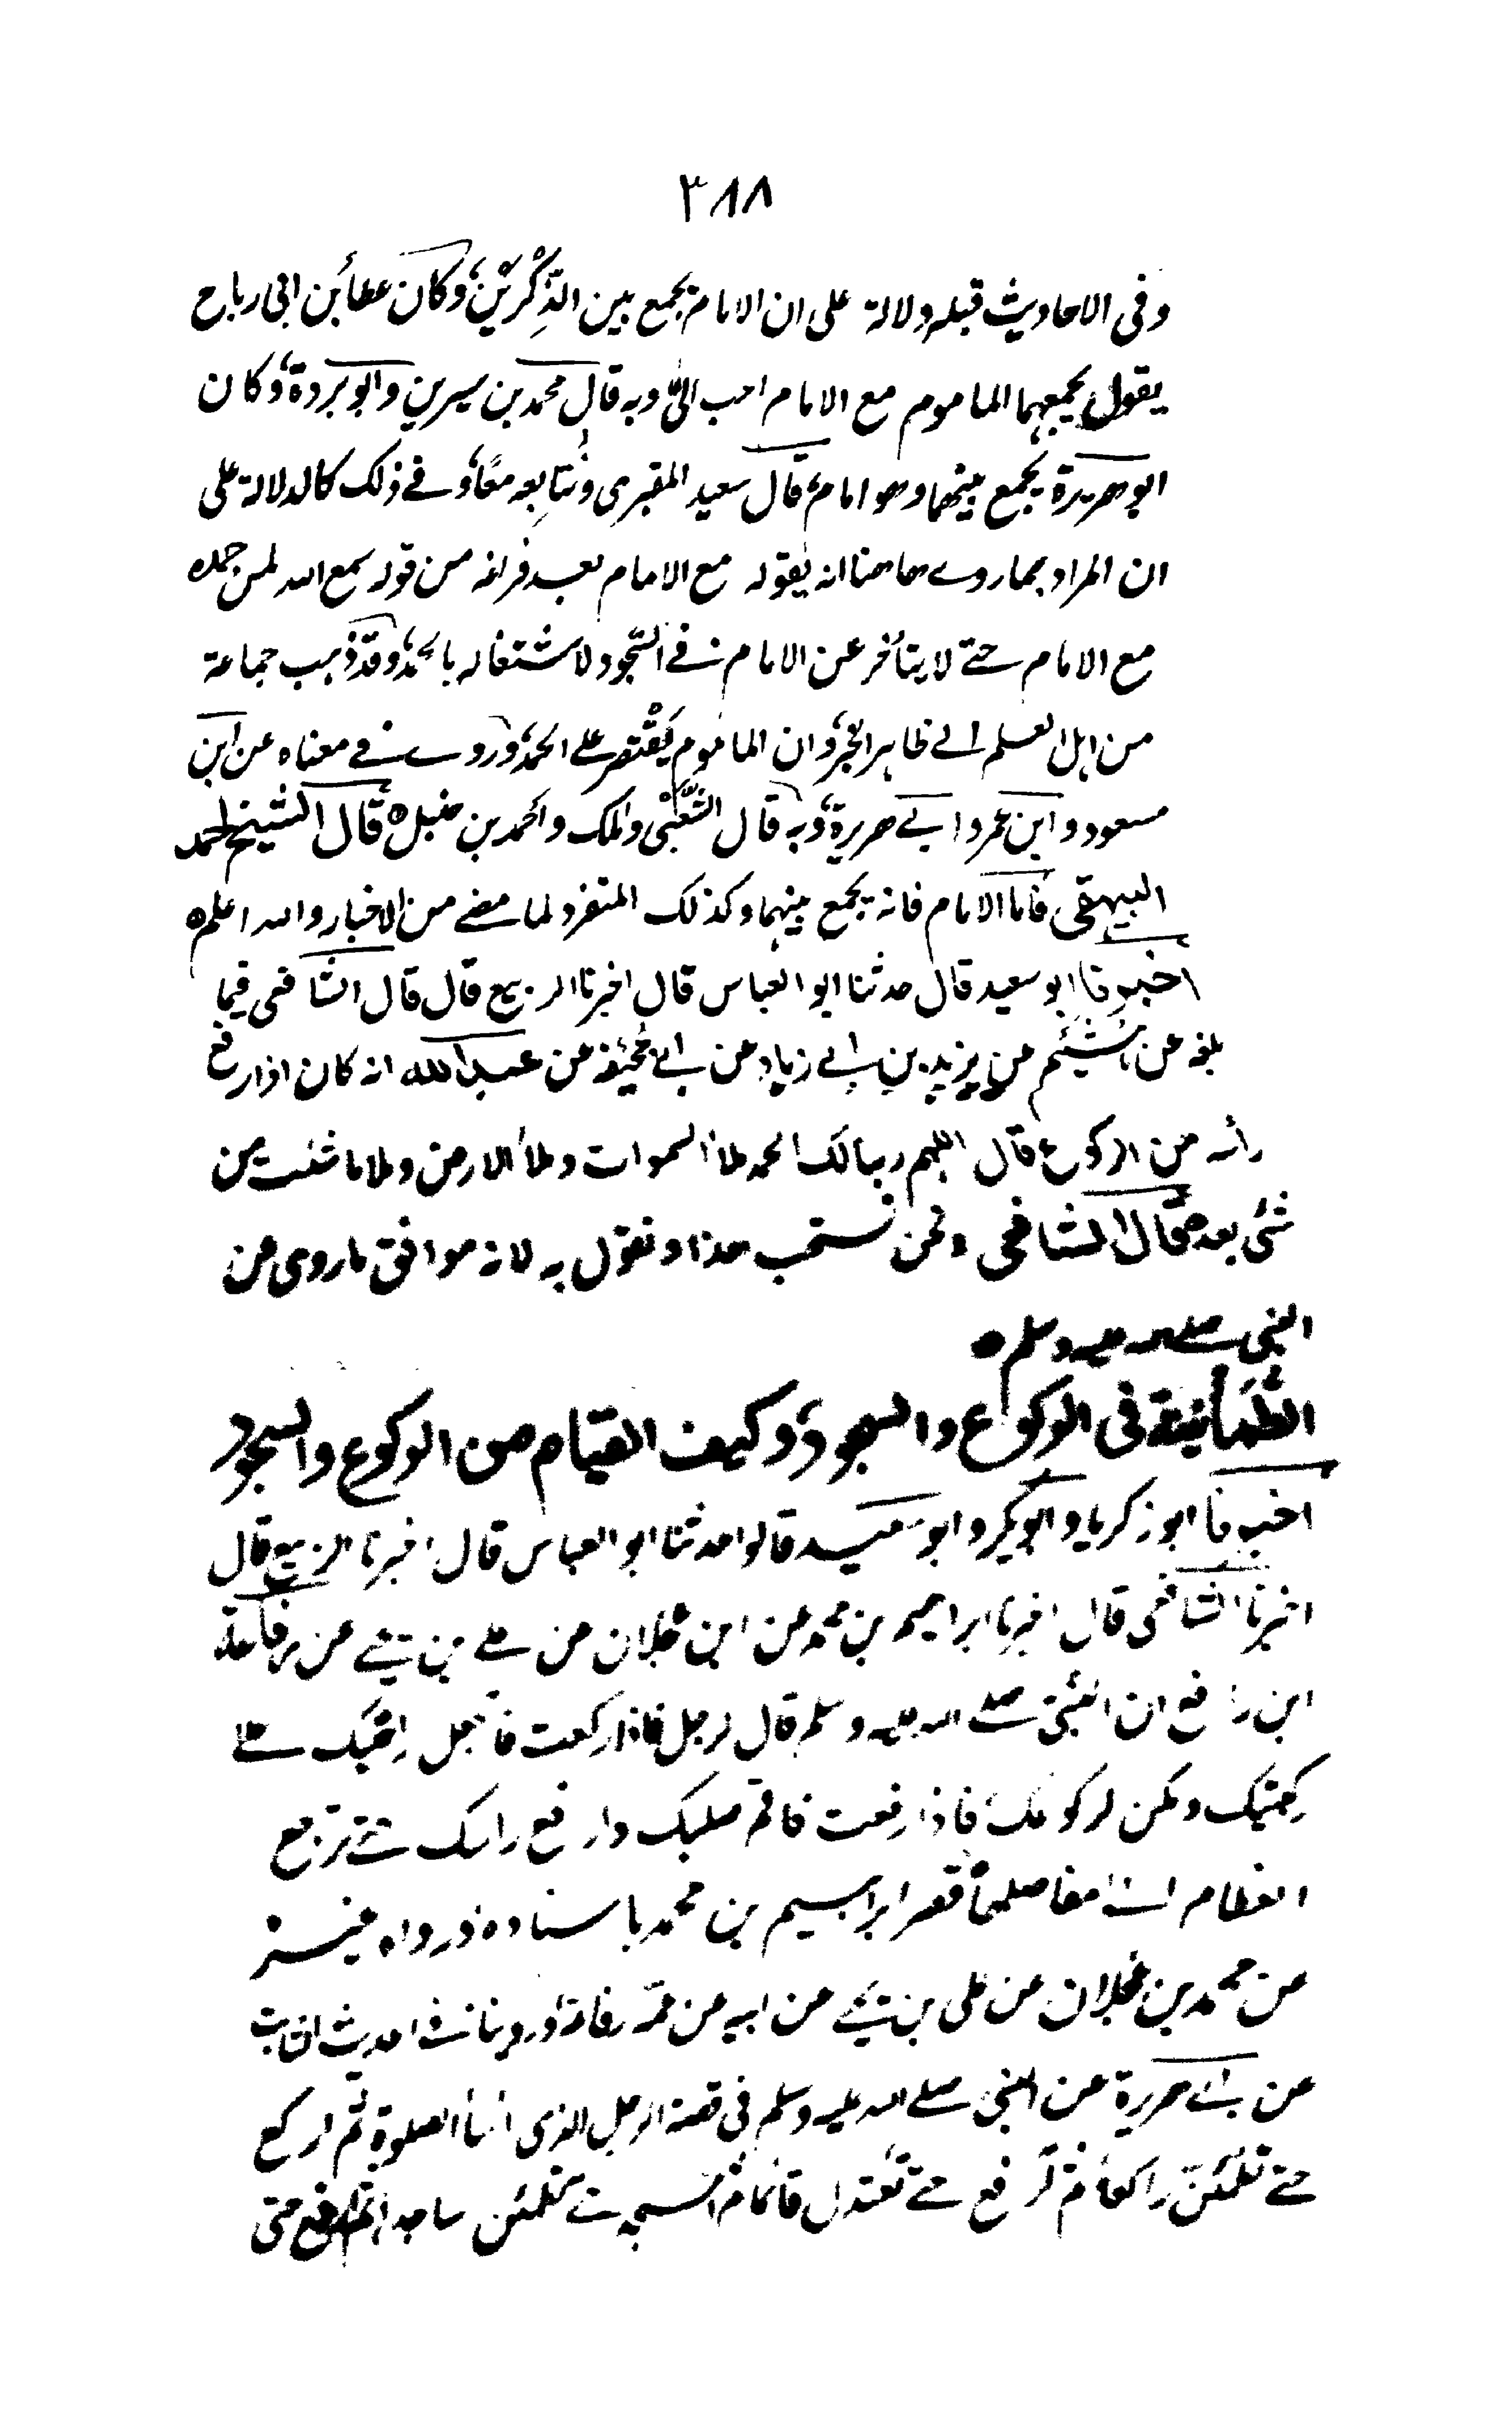 ٣٨٨
وفى الاحاديث قبله دلالة على ان الامام يجمع بين الذِّكْرَيْنِ، وكان عطأ بن ابى رباح
يقول يجمعهما الماموم مع الامام احب الىّ وبه قال محمد بن سيرين وابو بردة، وكان
ابو هريرة يجمع بينهما وهو امام، قال سعيد المقبرى ونُتابِعه معًا، وفى ذلك كالدلالة على
ان المراد بما روى هاهنا انه يقوله مع الامام بعد فراغه من قوله سمع الله لمن حمده
مع الامام حتى لا يتأخر عن الامام فى السّجود لاشتغاله بالحمد، وقد ذهب جماعة
من اهل العلم الى ظاهر الخبر، وان الماموم يَقْتصر على الحمد، وروى فى معناه عن ابن
مسعود وابن عمر وابى هريرة، وبه قال الشَّعْبى ومالك واحمد بن حنبل ٥ قال الشيخ احمد
البيهقى فاما الامام فانه يجمع بينهما وكذلك المنفرد لما مضى من الاخبار والله اعلم ٥
اخبرنا ابو سعيد قال حدثنا ابو العباس قال اخبرنا الربيع قال قال الشافعى فيما
بلغه عن هُشَيْم عن يزيد بن ابى زياد عن ابى جُحَيْفة عن عبد الله انه كان اذا رفع
رأسه من الركوع قال اللهم ربنا لك الحمد ملأ السموات وملأ الارض وملأ ما شئت من
شئ بعد قال الشافعى ونحن نستحب هذا ونقول به لانه موافق ما روى عن
النبى صلى الله عليه وسلم ٥
الطُّمَأنينة فى الركوع والسجود، وكيف القيام من الركوع والسجود
اخبرنا ابو زكريا وابو بكر وابو سعيد قالوا حدثنا ابو العباس قال اخبرنا الربيع قال
اخبرنا الشافعى قال اخبرنا ابراهيم بن محمد عن ابن عجلان عن على بن يحيى عن رفاعة
ابن رافع ان النبى صلى الله عليه وسلم قال لرجل فاذا ركعت فاجعل راحتيك على
ركبتيك ومكن لركوعك، فاذا رفعت فاقم صلبك وارفع راسك حتى ترجع
العظام الى مفاصلها، قصر ابراهيم بن محمد باسناده ورواه غيره
عن محمد بن عجلان عن على بن يحيى عن ابيه عن عمّه رفاعة، وروينا فى الحديث الثابت
عن ابى هريرة عن النبى صلى الله عليه وسلم فى قصة الرجل الذى اساأ الصلوة ثم اركع
حتى تطمئن راكعًا، ثم ارفع حتى تعتدل قائما، ثم اسجد حتى تطمئن ساجدا، ثم ارفع حتى